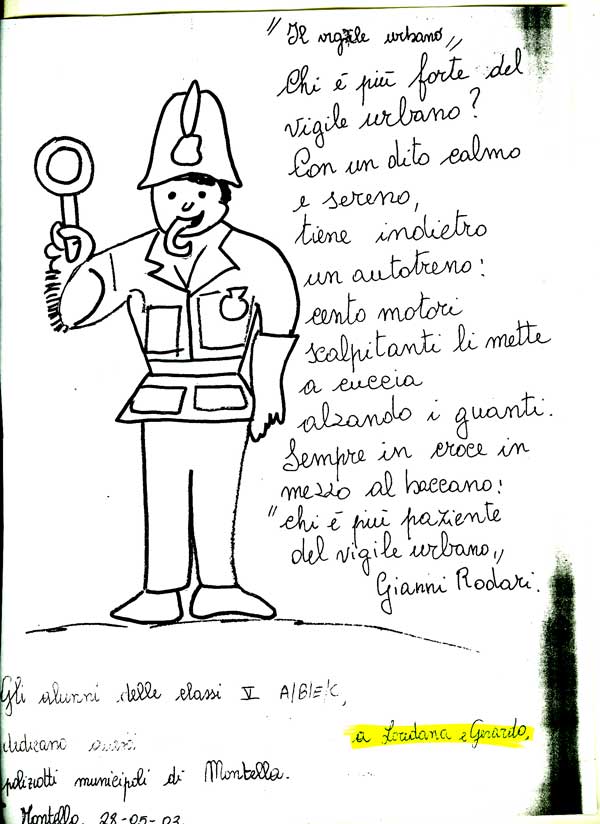 "Il vigile urbano"
Chi è più forte del
vigile urbano?
Con un dito calmo
e sereno,
tiene indietro
un autotreno:
cento motori
scalpitanti li mette
a cuccia
alzando i guanti.
Sempre in croce in
mezzo al baccano:
"chi è più paziente
del vigile urbano"
Gianni Rodari.
Gli alunni delle classi V A/B/E/C,
dedicano
a Loredana e Gerardo,
poliziotti municipali di Montella.
Montella, 28-05-03